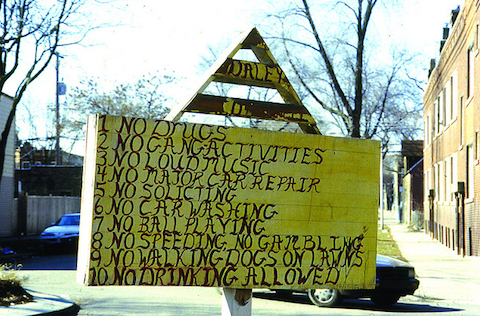 DALEY
1 NO DRUGS
2 NO GANG ACTIVITIES
3 NO LOUD MUSIC
4 NO MAJOR CAR REPAIR
5 NO SOLICITING
6 NO CAR WASHING
7 NO BALL PLAYING
8 NO SPEEDING, NO GAMBLING
9 NO WALKING DOGS ON LAWNS
10 NO DRINKING ALLOWED!